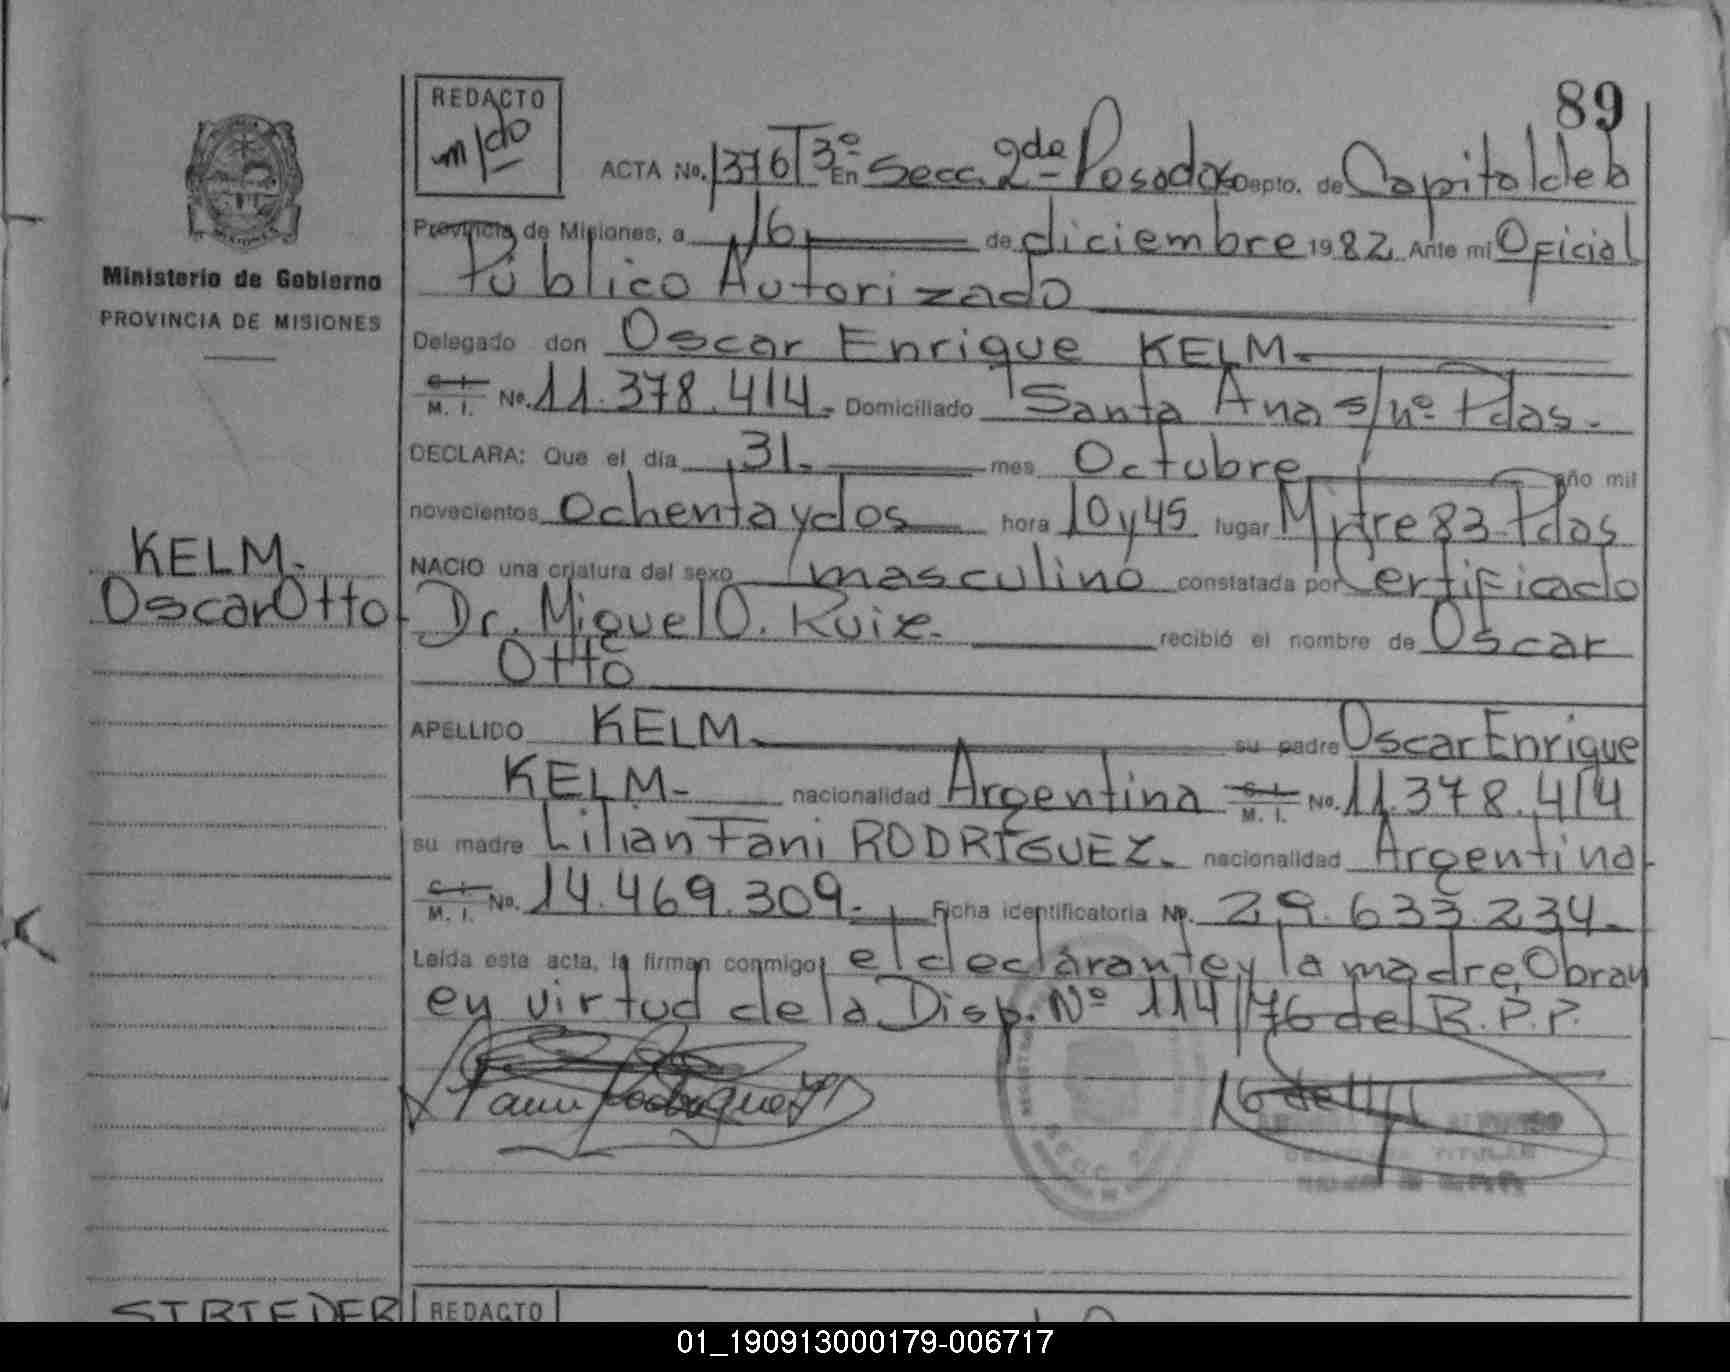 89
REDACTO
m/do
ACTA No. 1376 T 3º En Secc. 2da - Posadas Depto. de Capital de la
Provincia de Misiones, a 16 de diciembre 1982 Ante mí Oficial
Público Autorizado
Ministerio de Gobierno
PROVINCIA DE MISIONES
Delegado don Oscar Enrique KELM.
C. I.
M. I. No. 11.378.414. Domiciliado Santa Ana s/nº Pdas.
DECLARA: Que el día 31. mes Octubre año mil
novecientos Ochenta y dos hora 10 y 45 lugar Mitre 83 Pdas
KELM.
Oscar Otto
NACIO una criatura del sexo masculino constatada por Certificado
Dr. Miguel O. Ruiz. recibió el nombre de Oscar
Otto
APELLIDO KELM su padre Oscar Enrique
KELM - nacionalidad Argentina C. I. M. I. No. 11.378.414
su madre Lilian Fani RODRÍGUEZ. nacionalidad Argentina
C. I.
M. I. No. 14.469.309. Ficha identificatoria No. 29.633.234.
Leída esta acta, la firman conmigo, el declarante y la madre. Obran
en virtud de la Disp. Nº 114/76 del R.P.P.
Fani Rodriguez
TITULAR
STRIEDER
REDACTO
01_190913000179-006717